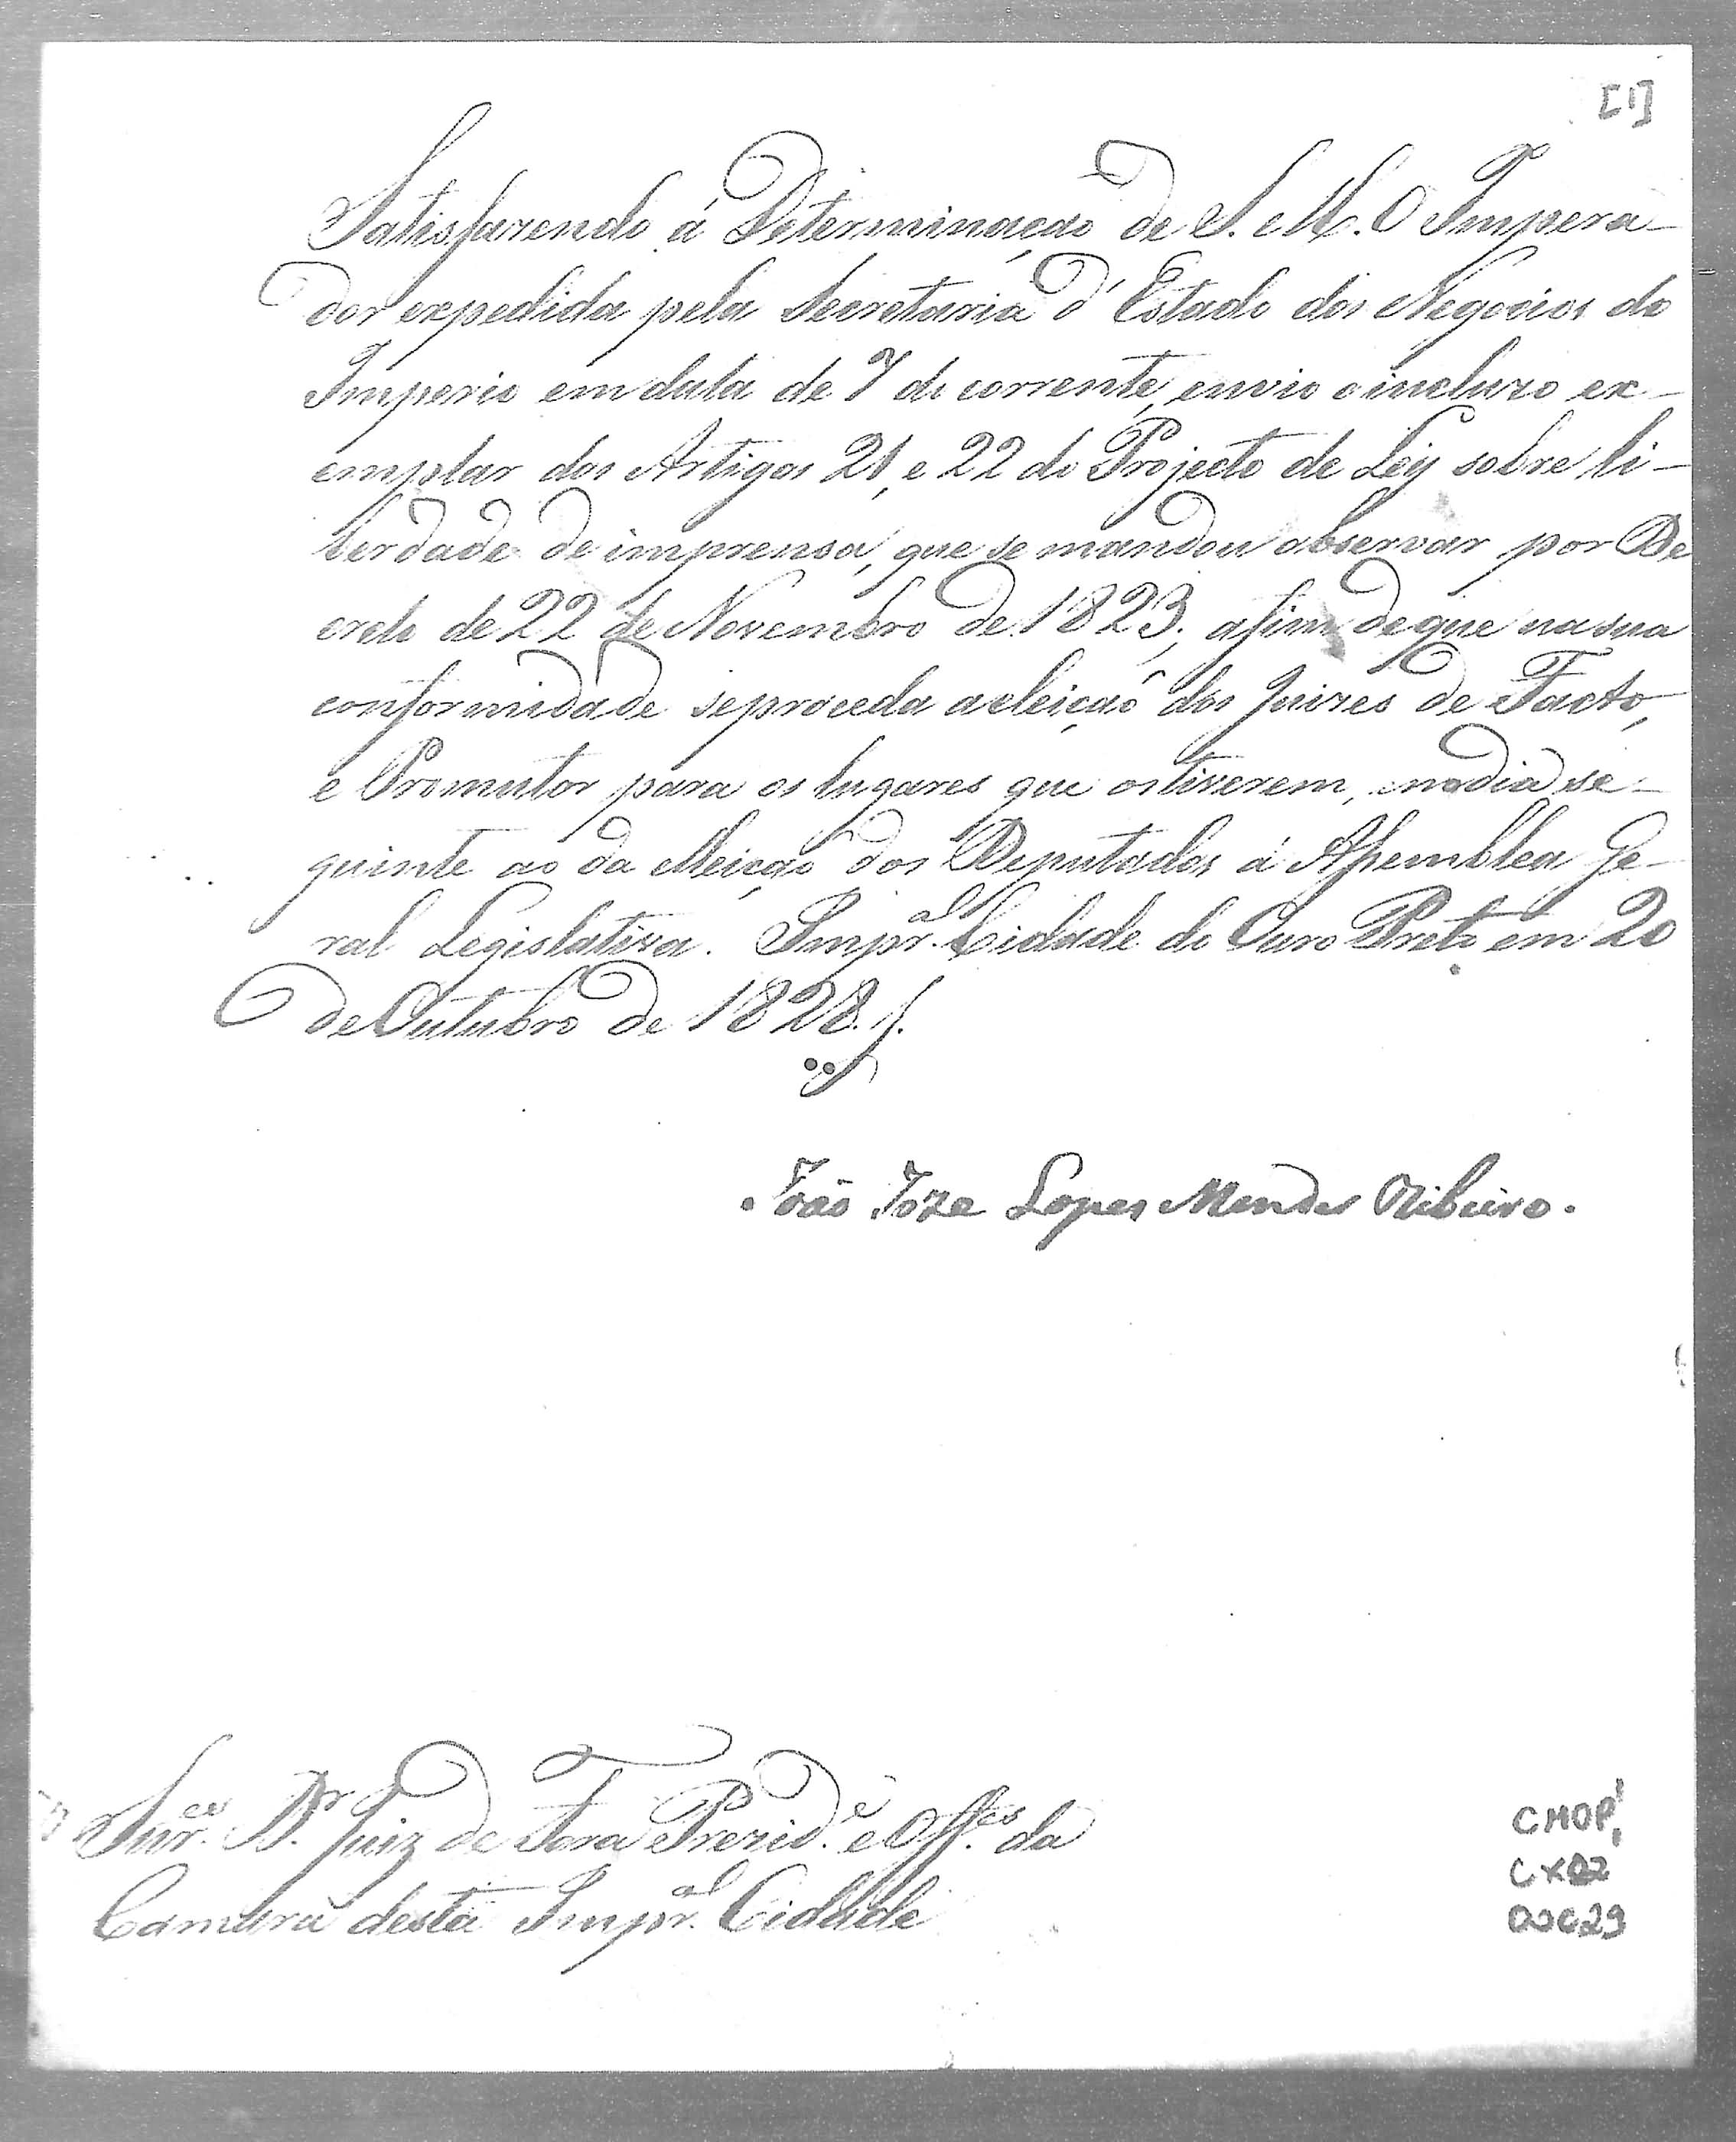 [1]
Satisfazendo á Determinaçaõ de S. M. O Impera-
dor expedida pela Secretaria d'Estado dos Negocios do
Imperio em data de 7 do corrente, envio o incluzo ex-
emplar dos Artigos 21, e 22 do Projecto de Ley sobre li-
berdade de imprensa, que se mandou observar por De
creto de 22 de Novembro de 1823, afim de que na sua
conformidade se proceda a eleiçaõ dos Juizes de Facto,
e Promutor para os lugares que os tiverem, no dia se-
guinte ao da Eleiçaõ dos Deputados á Assemblea Ge-
ral Legislativa. Impr.al Cidade do Ouro Preto em 20
de Outubro de 1828.
João Joze Lopes Mendes Ribeiro.
Snr.es D.r Juiz de Fora Prezid.e e Off.es da
Camara desta Impr.al Cidade
CMOP
CX02
DOC29